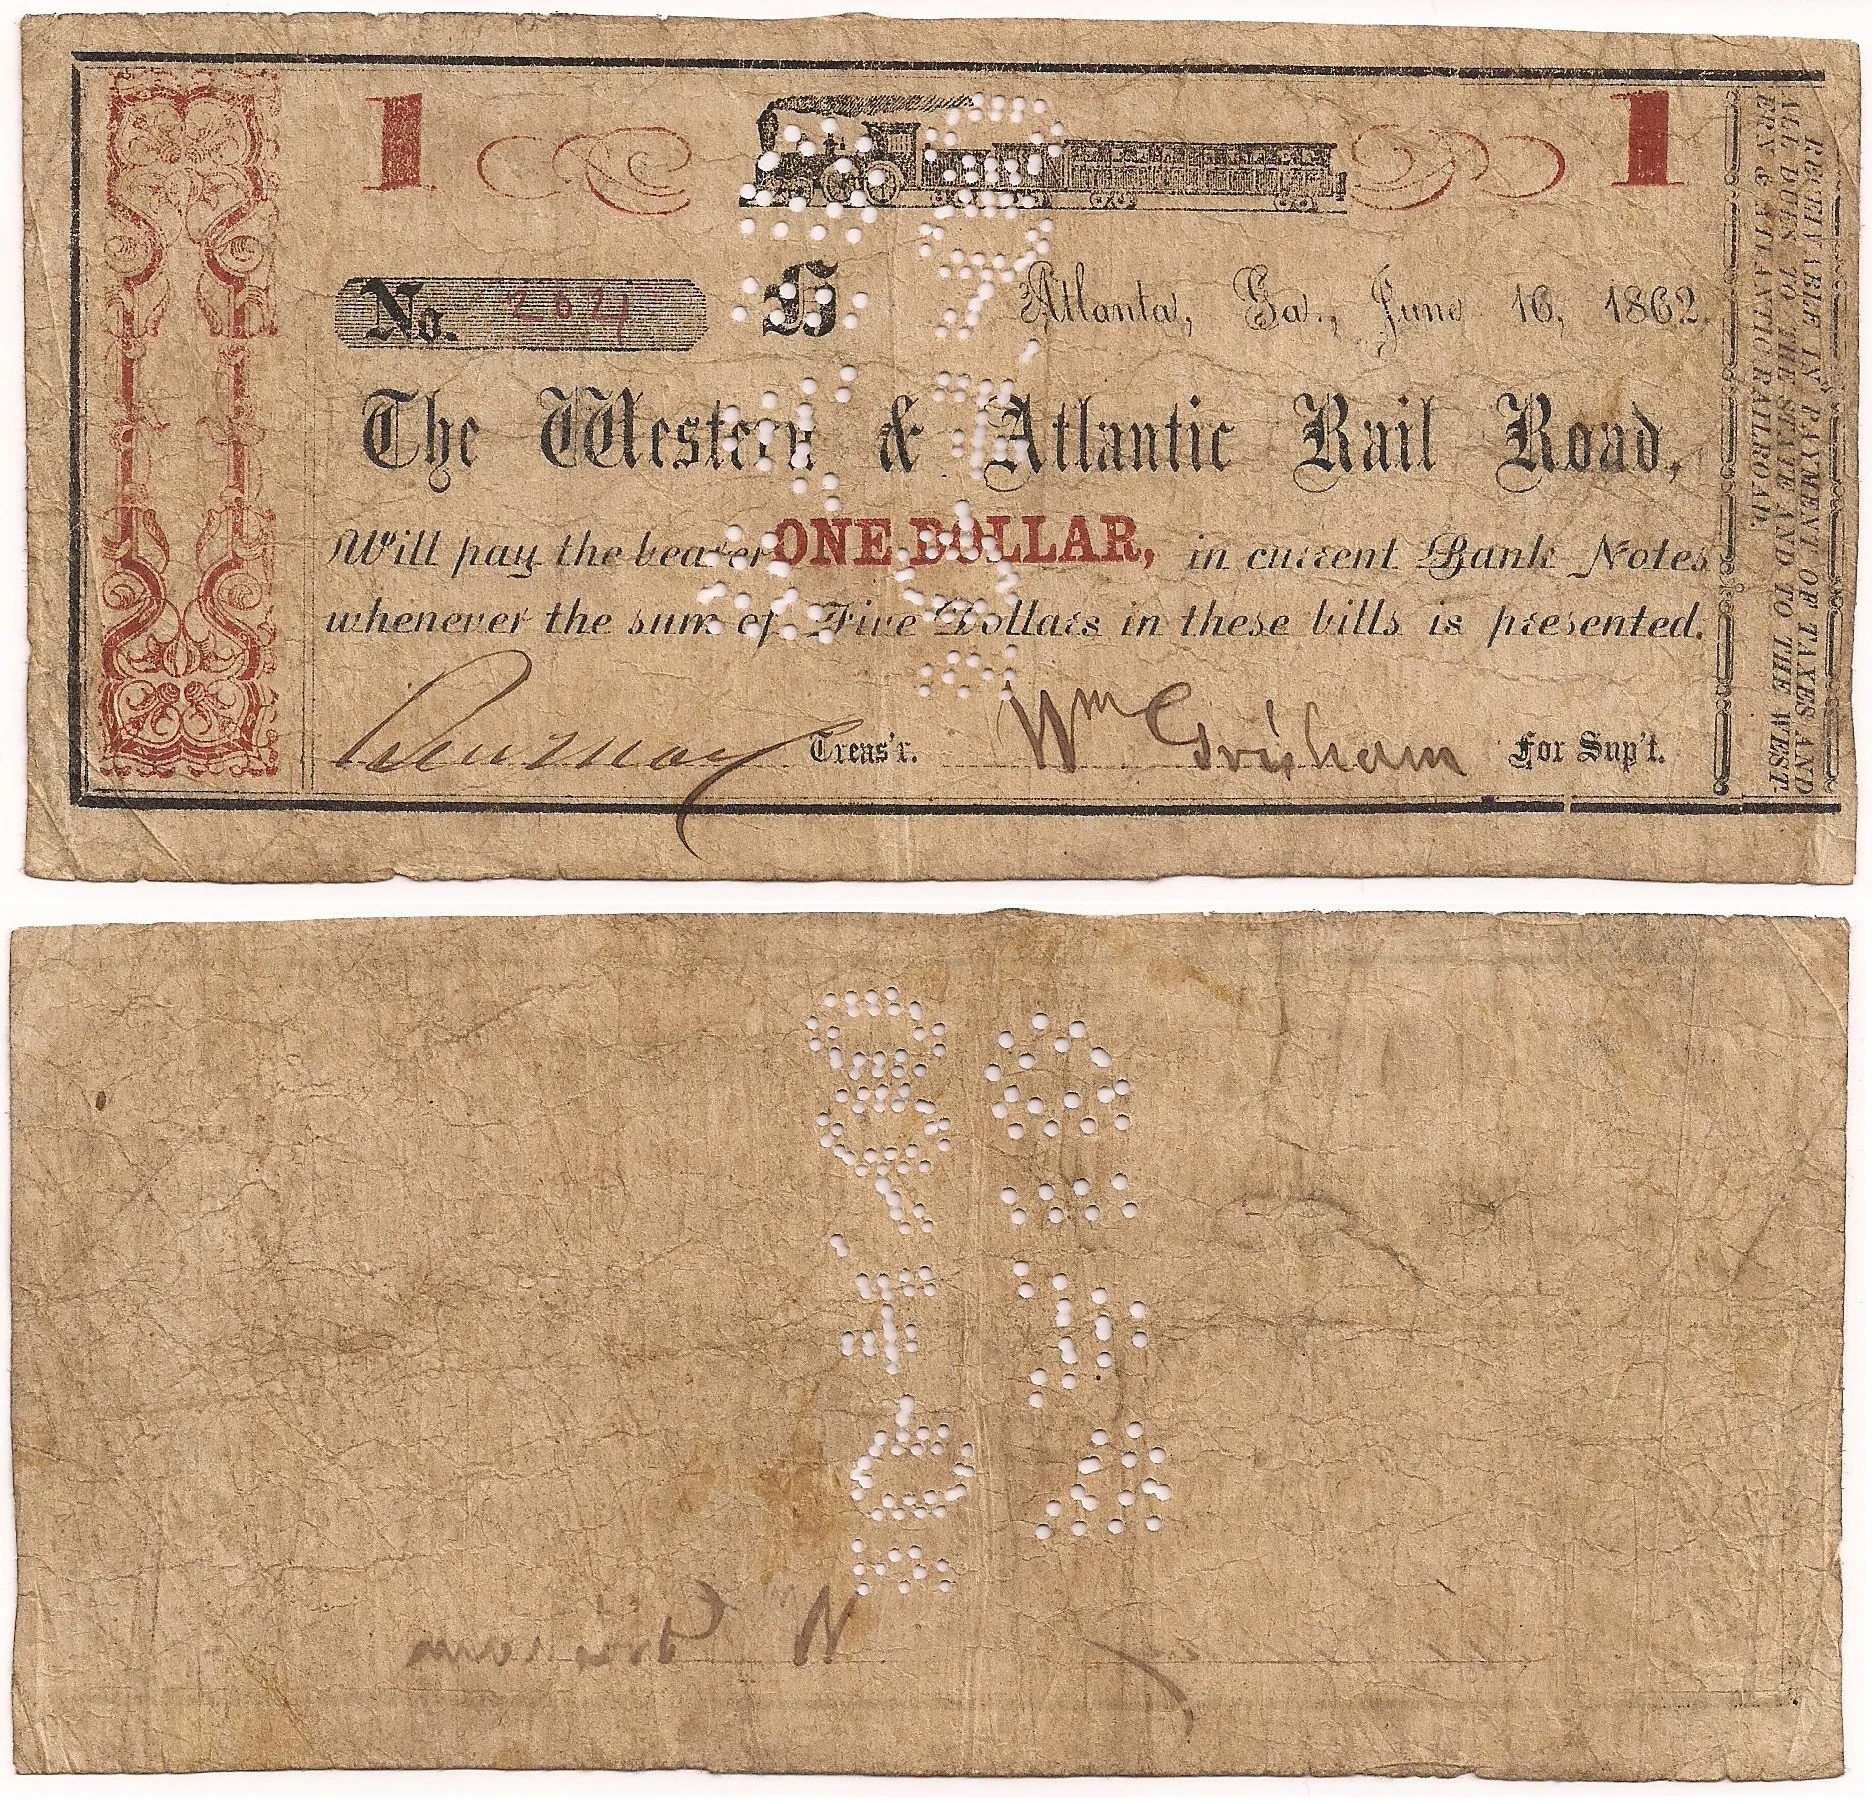 1 1
No. 204 H Atlanta, Ga., June 16, 1862.
The Western & Atlantic Rail Road,
Will pay the bearer ONE DOLLAR, in current Bank Notes
whenever the sum of Five Dollars in these bills is presented.
Treas'r. Wm Grisham For Sup't.
RECEIVABLE IN PAYMENT OF TAXES AND
ALL DUES TO THE STATE AND TO THE WEST-
ERN & ATLANTIC RAILROAD.